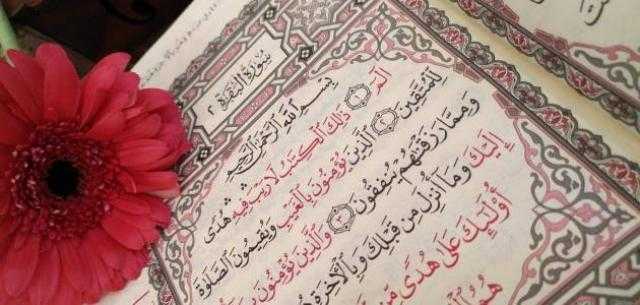 سُورَةُ البَقَرَةِ ٢
بِسْمِ اللَّهِ الرَّحْمَٰنِ الرَّحِيمِ
الٓمٓ ١ ذَٰلِكَ الْكِتَٰبُ لَا رَيْبَ فِيهِ هُدًى
لِّلْمُتَّقِينَ ٢ الَّذِينَ يُؤْمِنُونَ بِالْغَيْبِ وَيُقِيمُونَ الصَّلَوٰةَ
وَمِمَّا رَزَقْنَٰهُمْ يُنفِقُونَ ٣ وَالَّذِينَ يُؤْمِنُونَ
إِلَيْكَ وَمَا أُنزِلَ مِن قَبْلِكَ وَبِالْآخِرَةِ
أُولَٰئِكَ عَلَىٰ هُدًى مِّن
هُمُ